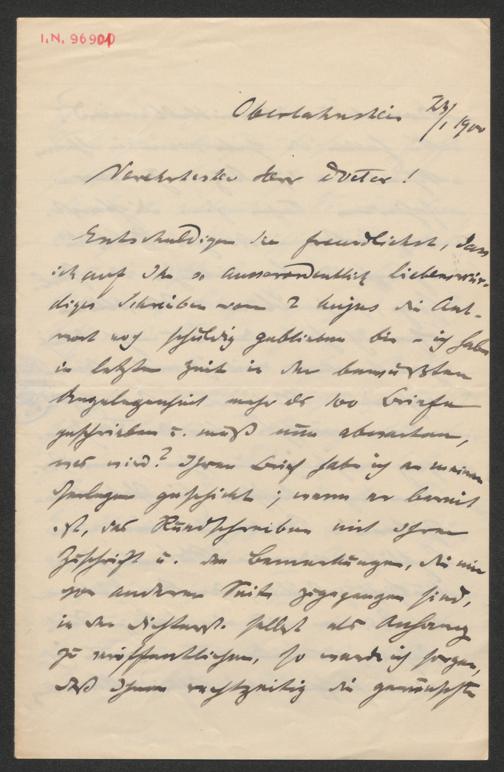 I.N. 96900
Oberlahnstein 23/1 1900
Verehrtester Herr Doctor!
Entschuldigen Sie freundlichst, dass
ich auf Ihr so ausserordentlich liebenswür-
diges Schreiben vom 2 hujus die Ant-
wort noch schuldig geblieben bin – ich habe
in letzter Zeit in der bewußten
Angelegenheit mehr als 100 Briefe
geschrieben u. muß nun abwarten,
was wird? Ihren Brief habe ich an meinen
Verleger geschickt; wenn er bereit
ist, das Rundschreiben mit Ihrer
Zuschrift u. den Bemerkungen, die mir
von anderer Seite zugegangen sind,
in der selbst als Anhang
zu veröffentlichen, so werde ich sorgen,
daß Ihnen rechtzeitig die gewünschte